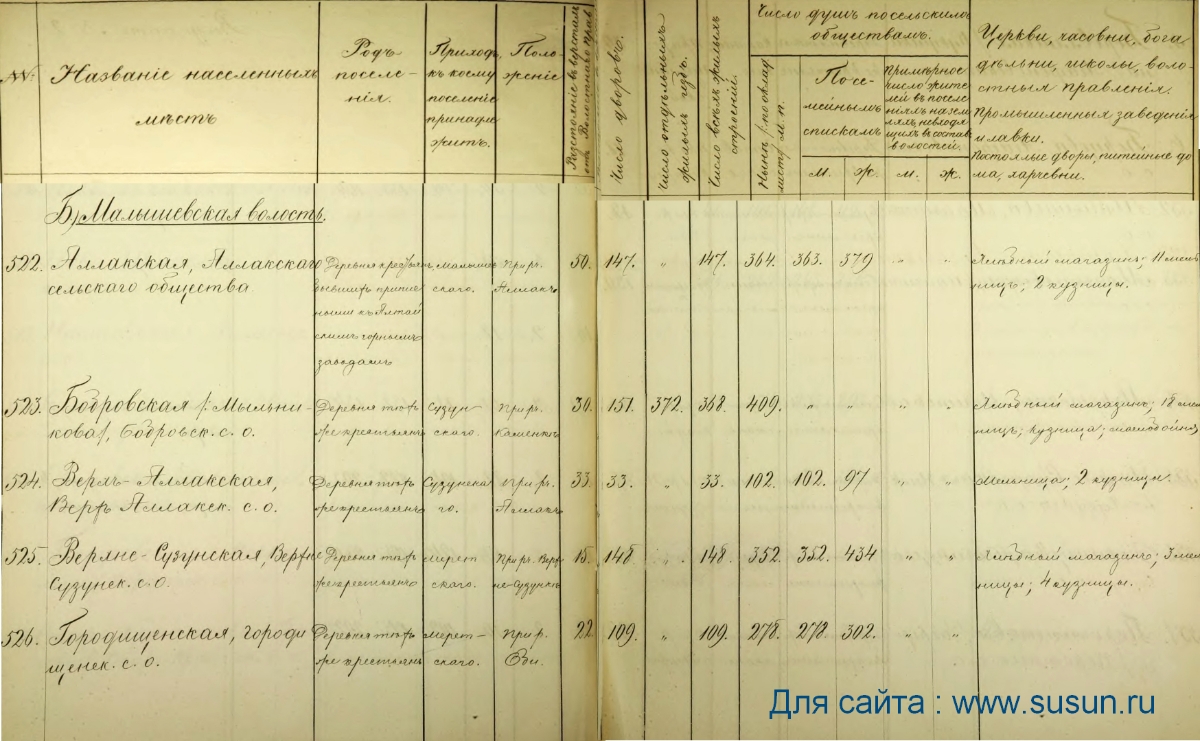 №№
Названіе населенныхъ
мѣстъ
Родъ
поселе-
нія.
Приходъ,
къ коему
поселеніе
принадле-
житъ.
Поло-
женіе
Разстояніе въ верстахъ
отъ Волостнаго прав
Число дворовъ.
Число отдѣльныхъ
жилыхъ избъ.
Число всѣхъ жилыхъ
строеній.
Число душъ по сельскимъ
обществамъ.
Нынѣ по оклад
листу м. п.
По се-
мейнымъ
спискамъ
м.
ж.
Примѣрное
число жите
лей въ поселе
ніяхъ на зем
ляхъ, невходя
щихъ въ составъ
волостей.
м.
ж.
Церкви, часовни, бога
дѣльни, школы, воло-
стныя правленія.
Промышленныя заведенія
и лавки.
Постоялые дворы, питейные до
ма, харчевни.
Б) Малышевская волость.
522. Аллакская, Аллакскаго
сельскаго общества
Деревня крестьянъ
бывшихъ припис
ными къ Алтай
скимъ горнымъ
заводамъ
Малышев
скаго.
При р.
Аллакъ
50. 147. „ 147. 364. 363. 379 „ „
Хлѣбный магазинъ; 11 мель
ницъ; 2 кузницы.
523. Бобровская /: Мыльни-
кова/, Бобровск. с. о.
Деревня тѣхъ
же крестьянъ
Сузун-
скаго.
При р.
Каменкѣ
30. 151. 372. 368. 409. „ „ „ „
Хлѣбный магазинъ; 18 мел
ницъ; кузница;
524. Верхъ-Аллакская,
Верхъ Аллакск. с. о.
Деревня тѣхъ
же крестьянъ
Сузунска
го.
При р.
Аллакъ
33. 33. „ 33. 102. 102. 97 „ „
Мельница; 2 кузницы.
525. Верхне-Сузунская, Верхне
Сузунск. с. о.
Деревня тѣхъ
же крестьянъ
Мерет
скаго.
При р. Верх
не-Сузункѣ
15. 148 „ 148. 352. 352. 434 „ „
Хлѣбный магазинъ; 3 мел
ницы; 4 кузницы.
526. Городищенская, Городи
щенск. с. о.
Деревня тѣхъ
же крестьянъ
Мерет-
скаго.
При р.
Оби.
22. 109. „ 109. 278. 278. 302. „ „
Для сайта : www.susun.ru